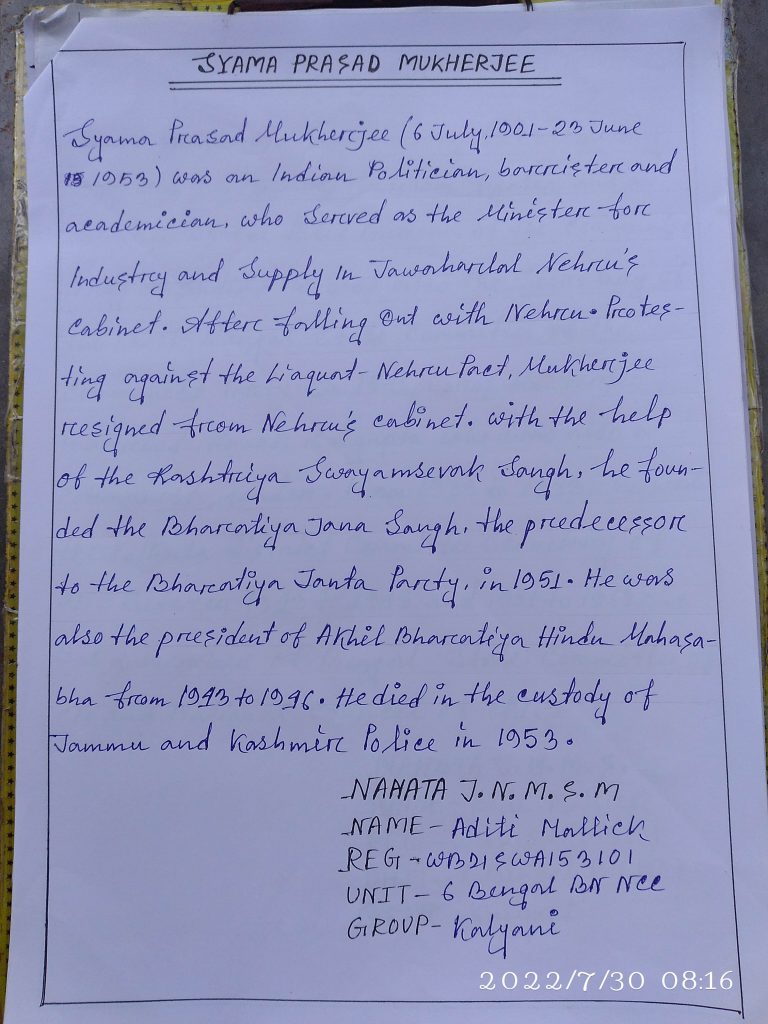 SYAMA PRASAD MUKHERJEE
Syama Prasad Mukherjee (6 July, 1901-23 June
1953) was an Indian Politician, barrister and
academician, who Served as the Minister for
Industry and Supply In Jawaharlal Nehru's
Cabinet. After falling Out with Nehru. Protes-
ting against the Liaquat-Nehru Pact, Mukherjee
resigned from Nehru's cabinet. with the help
of the Rashtriya Swayamsevak Sangh, he foun-
ded the Bharatiya Jana Sangh, the predecessor
to the Bharatiya Janta Party, in 1951. He was
also the president of Akhil Bharatiya Hindu Mahasa-
bha from 1943 to 1946. He died in the custody of
Jammu and Kashmir Police in 1953.
NAHATA J.N.M.S.M
NAME- Aditi Mallick
REG - WB21SWA153101
UNIT- 6 Bengal BN NCC
GROUP- Kalyani
2022/7/30 08:16